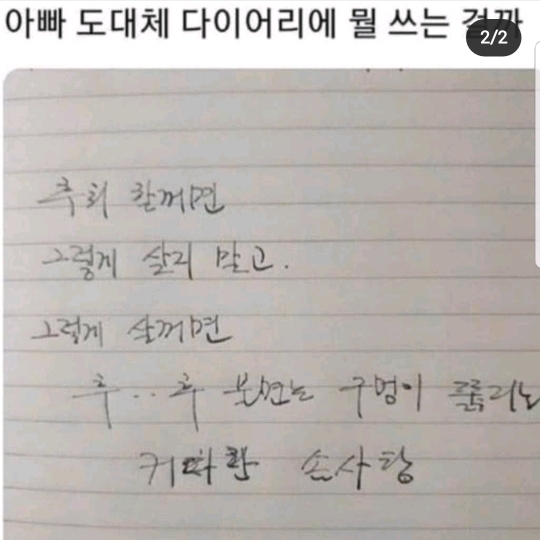 아빠 도대체 다이어리에 뭘 쓰는 걸까
2/2
후회 할꺼면
그렇게 살지 말고.
그렇게 살꺼면
후‥후 불면는 구멍이 뚫리는
커다란 솜사탕